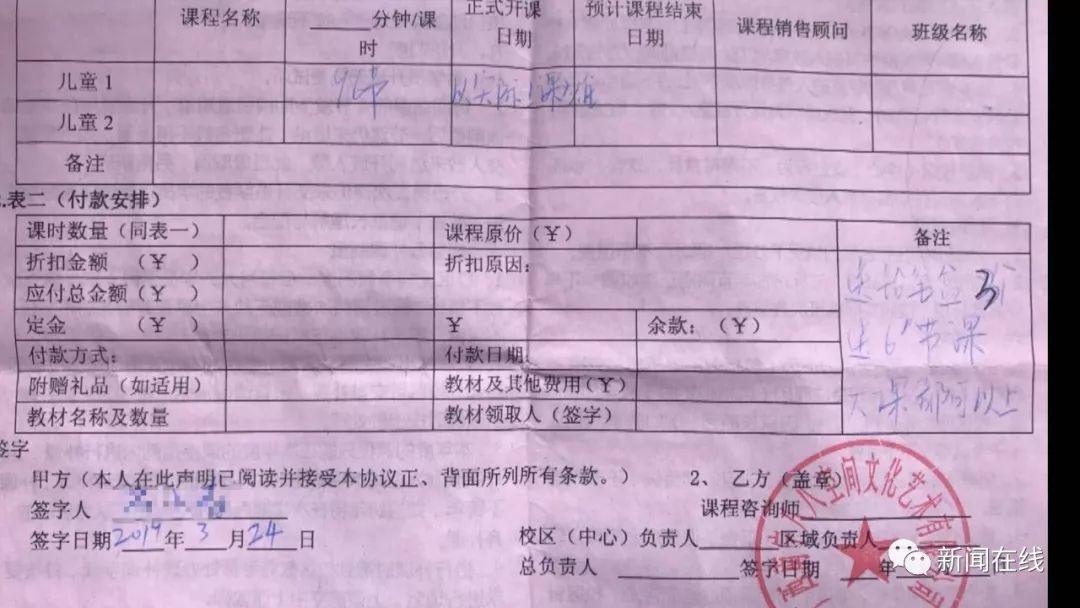 课程名称 ______分钟/课时 正式开课日期 预计课程结束日期 课程销售顾问 班级名称
儿童 1 96节
儿童 2
备注
表二（付款安排）
课时数量（同表一） 课程原价（￥） 备注
折扣金额 （￥） 折扣原因：
应付总金额（￥）
定金 （￥） ￥ 余款：（￥） 送6节课
付款方式： 付款日期：
附赠礼品（如适用） 教材及其他费用(￥)
教材名称及数量 教材领取人（签字） 课都可以上
签字
甲方（本人在此声明已阅读并接受本协议正、背面所列所有条款。） 2、 乙方（盖章）
签字人 课程咨询师
签字日期2019年3月24日 校区（中心）负责人 区域负责人
总负责人 签字日期 年
空间文化艺术有限公司
新闻在线